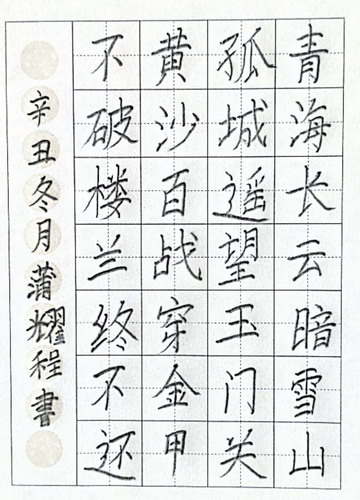 青海长云暗雪山
孤城遥望玉门关
黄沙百战穿金甲
不破楼兰终不还
辛丑冬月蒲耀程書